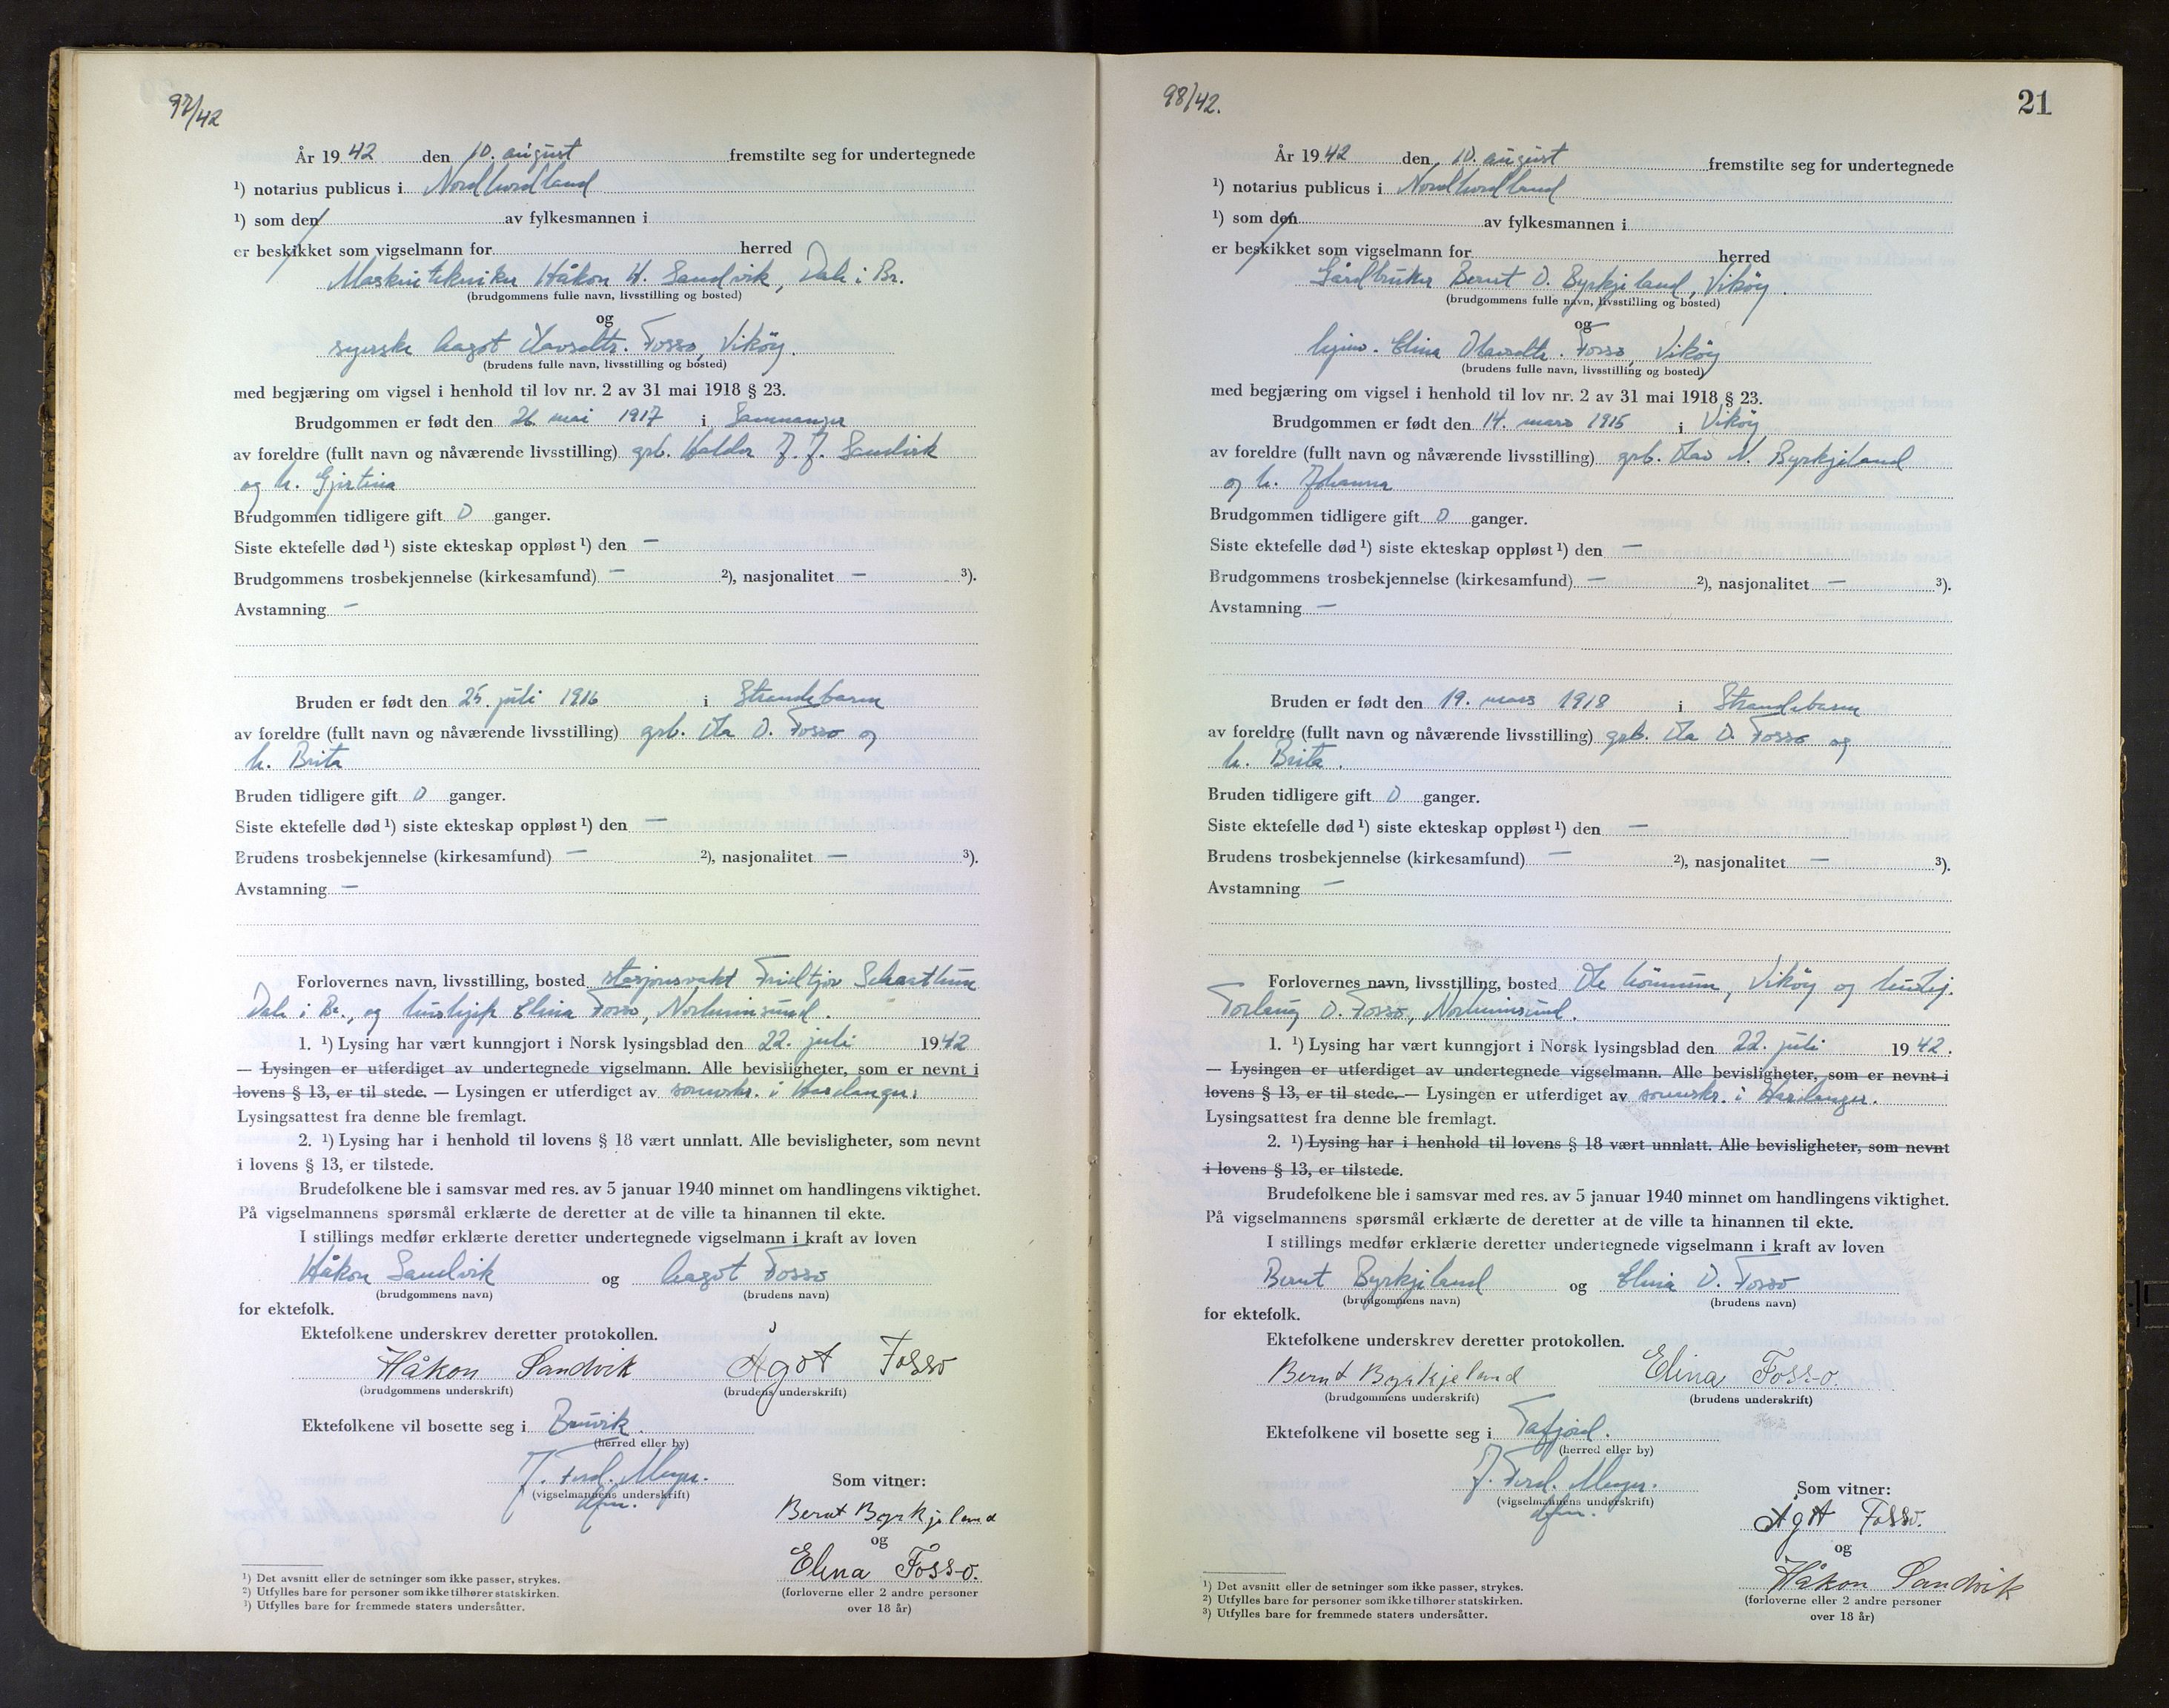 97/42
År 1942 den 10. august fremstilte seg for undertegnede
¹) notarius publicus i Nordhordland
¹) som den av fylkesmannen i
er beskikket som vigselmann for herred
Maskintekniker Håkon H. Sandvik, Dale i Br.
(brudgommens fulle navn, livsstilling og bosted)
og
syerske Aagot Olavsdtr. Fosso, Vikøy.
(brudens fulle navn, livsstilling og bosted)
med begjæring om vigsel i henhold til lov nr. 2 av 31 mai 1918 § 23.
Brudgommen er født den 26. mai 1917 i Samnanger
av foreldre (fullt navn og nåværende livsstilling) grb. Haldor J. J. Sandvik
og h. Gjertina
Brudgommen tidligere gift 0 ganger.
Siste ektefelle død ¹) siste ekteskap oppløst ¹) den —
Brudgommens trosbekjennelse (kirkesamfund) — ²), nasjonalitet — ³).
Avstamning —
Bruden er født den 25. juli 1916 i Strandebarm
av foreldre (fullt navn og nåværende livsstilling) grb. Ola O. Fosso og
h. Brita
Bruden tidligere gift 0 ganger.
Siste ektefelle død ¹) siste ekteskap oppløst ¹) den —
Brudens trosbekjennelse (kirkesamfund) — ²), nasjonalitet — ³).
Avstamning —
Forlovernes navn, livsstilling, bosted stasjonsvakt Fridtjov Schartum
Dale i Br., og hushjelp Elina Fosso, Norheimsund.
1. ¹) Lysing har vært kunngjort i Norsk lysingsblad den 22. juli 1942
— Lysingen er utferdiget av undertegnede vigselmann. Alle bevisligheter, som er nevnt i
lovens § 13, er til stede. — Lysingen er utferdiget av sorenskr. i Hardanger.
Lysingsattest fra denne ble fremlagt.
2. ¹) Lysing har i henhold til lovens § 18 vært unnlatt. Alle bevisligheter, som nevnt
i lovens § 13, er tilstede.
Brudefolkene ble i samsvar med res. av 5 januar 1940 minnet om handlingens viktighet.
På vigselmannens spørsmål erklærte de deretter at de ville ta hinannen til ekte.
I stillings medfør erklærte deretter undertegnede vigselmann i kraft av loven
Håkon Sandvik og Aagot Fosso
(brudgommens navn) (brudens navn)
for ektefolk.
Ektefolkene underskrev deretter protokollen.
Håkon Sandvik Ågot Fosso
(brudgommens underskrift) (brudens underskrift)
Ektefolkene vil bosette seg i Bruvik.
(herred eller by)
J. Ferd. Meyer.
(vigselmannens underskrift)
dfm.
Som vitner:
Bernt Byrkjeland
og
Elina Fosso.
(forloverne eller 2 andre personer
over 18 år)
¹) Det avsnitt eller de setninger som ikke passer, strykes.
²) Utfylles bare for personer som ikke tilhører statskirken.
³) Utfylles bare for fremmede staters undersåtter.
98/42.
21
År 1942 den 10. august fremstilte seg for undertegnede
¹) notarius publicus i Nordhordland
¹) som den av fylkesmannen i
er beskikket som vigselmann for herred
Gårdbruker Bernt O. Byrkjeland, Vikøy.
(brudgommens fulle navn, livsstilling og bosted)
og
hjmv. Elina Olavsdtr. Fosso, Vikøy
(brudens fulle navn, livsstilling og bosted)
med begjæring om vigsel i henhold til lov nr. 2 av 31 mai 1918 § 23.
Brudgommen er født den 14. mars 1915 i Vikøy
av foreldre (fullt navn og nåværende livsstilling) grb. Olav N. Byrkjeland
og h. Johanna
Brudgommen tidligere gift 0 ganger.
Siste ektefelle død ¹) siste ekteskap oppløst ¹) den —
Brudgommens trosbekjennelse (kirkesamfund) — ²), nasjonalitet — ³).
Avstamning —
Bruden er født den 19. mars 1918 i Strandebarm
av foreldre (fullt navn og nåværende livsstilling) grb. Ola O. Fosso og
h. Brita.
Bruden tidligere gift 0 ganger.
Siste ektefelle død ¹) siste ekteskap oppløst ¹) den —
Brudens trosbekjennelse (kirkesamfund) — ²), nasjonalitet — ³).
Avstamning —
Forlovernes navn, livsstilling, bosted Ole Vikøy og hushj.
Torlaug O. Fosso, Norheimsund.
1. ¹) Lysing har vært kunngjort i Norsk lysingsblad den 22. juli 1942.
— Lysingen er utferdiget av undertegnede vigselmann. Alle bevisligheter, som er nevnt i
lovens § 13, er til stede. — Lysingen er utferdiget av sorenskr. i Hardanger.
Lysingsattest fra denne ble fremlagt.
2. ¹) Lysing har i henhold til lovens § 18 vært unnlatt. Alle bevisligheter, som nevnt
i lovens § 13, er tilstede.
Brudefolkene ble i samsvar med res. av 5 januar 1940 minnet om handlingens viktighet.
På vigselmannens spørsmål erklærte de deretter at de ville ta hinannen til ekte.
I stillings medfør erklærte deretter undertegnede vigselmann i kraft av loven
Bernt Byrkjeland og Elina O. Fosso
(brudgommens navn) (brudens navn)
for ektefolk.
Ektefolkene underskrev deretter protokollen.
Bernt Byrkjeland Elina Fosso.
(brudgommens underskrift) (brudens underskrift)
Ektefolkene vil bosette seg i Tafjord.
(herred eller by)
J. Ferd. Meyer.
(vigselmannens underskrift)
dfm.
Som vitner:
Ågot Fosso.
og
Håkon Sandvik
(forloverne eller 2 andre personer
over 18 år)
¹) Det avsnitt eller de setninger som ikke passer, strykes.
²) Utfylles bare for personer som ikke tilhører statskirken.
³) Utfylles bare for fremmede staters undersåtter.